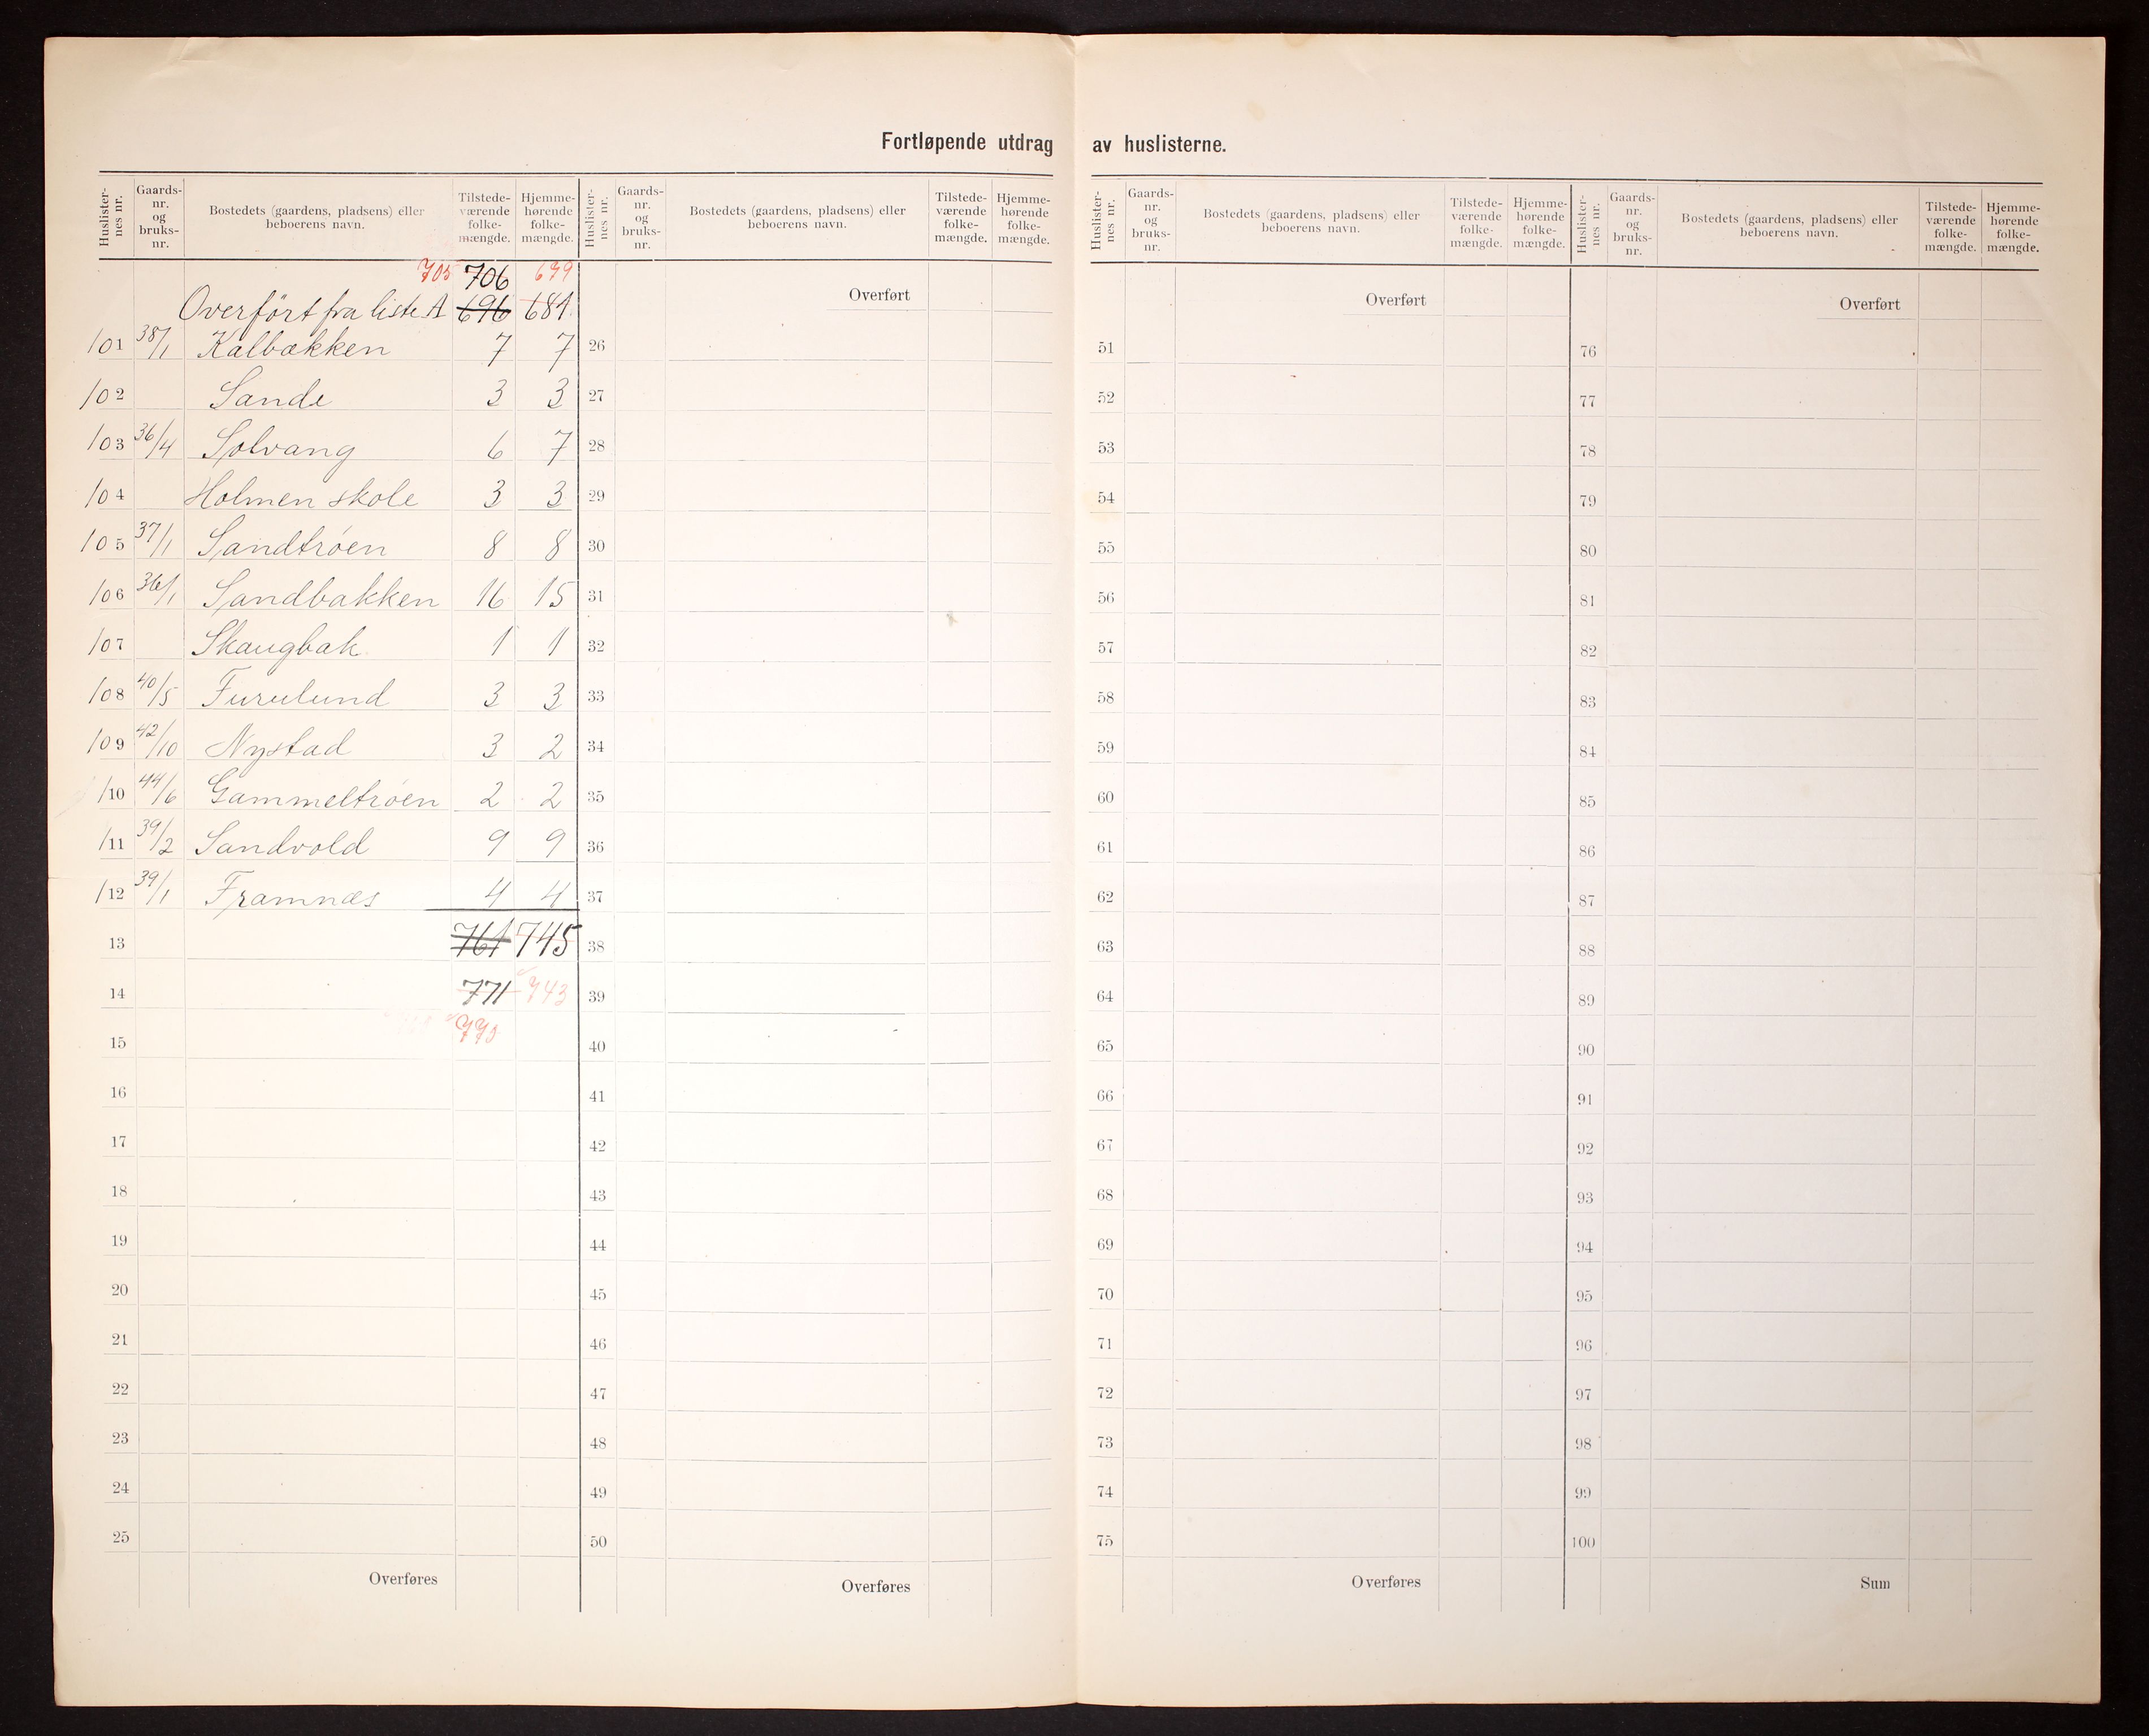 Fortløpende utdrag av huslisterne.
Huslister-nes nr. | Gaards-nr. og bruks-nr. | Bostedets (gaardens, pladsens) eller beboerens navn. | Tilstede-værende folke-mængde. | Hjemme-hørende folke-mængde.
705 706 679
Overført fra liste A 696 681
101 38/1 Kalbækken 7 7
102 Sande 3 3
103 36/4 Solvang 6 7
104 Holmen skole 3 3
105 37/1 Sandtrøen 8 8
106 36/1 Sandbakken 16 15
107 Skaugbak 1 1
108 40/5 Furulund 3 3
109 42/10 Nystad 3 2
110 44/6 Gammeltrøen 2 2
111 39/2 Sandvold 9 9
112 39/1 Framnæs 4 4
13 761 745
14 771 743
15 770
16
17
18
19
20
21
22
23
24
25
Overføres
Huslister-nes nr. | Gaards-nr. og bruks-nr. | Bostedets (gaardens, pladsens) eller beboerens navn. | Tilstede-værende folke-mængde. | Hjemme-hørende folke-mængde.
Overført
26
27
28
29
30
31
32
33
34
35
36
37
38
39
40
41
42
43
44
45
46
47
48
49
50
Overføres
Huslister-nes nr. | Gaards-nr. og bruks-nr. | Bostedets (gaardens, pladsens) eller beboerens navn. | Tilstede-værende folke-mængde. | Hjemme-hørende folke-mængde.
Overført
51
52
53
54
55
56
57
58
59
60
61
62
63
64
65
66
67
68
69
70
71
72
73
74
75
Overføres
Huslister-nes nr. | Gaards-nr. og bruks-nr. | Bostedets (gaardens, pladsens) eller beboerens navn. | Tilstede-værende folke-mængde. | Hjemme-hørende folke-mængde.
Overført
76
77
78
79
80
81
82
83
84
85
86
87
88
89
90
91
92
93
94
95
96
97
98
99
100
Sum